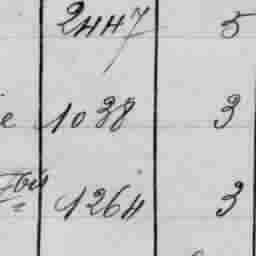 2447 5
e 1038 3
bis 1264 3